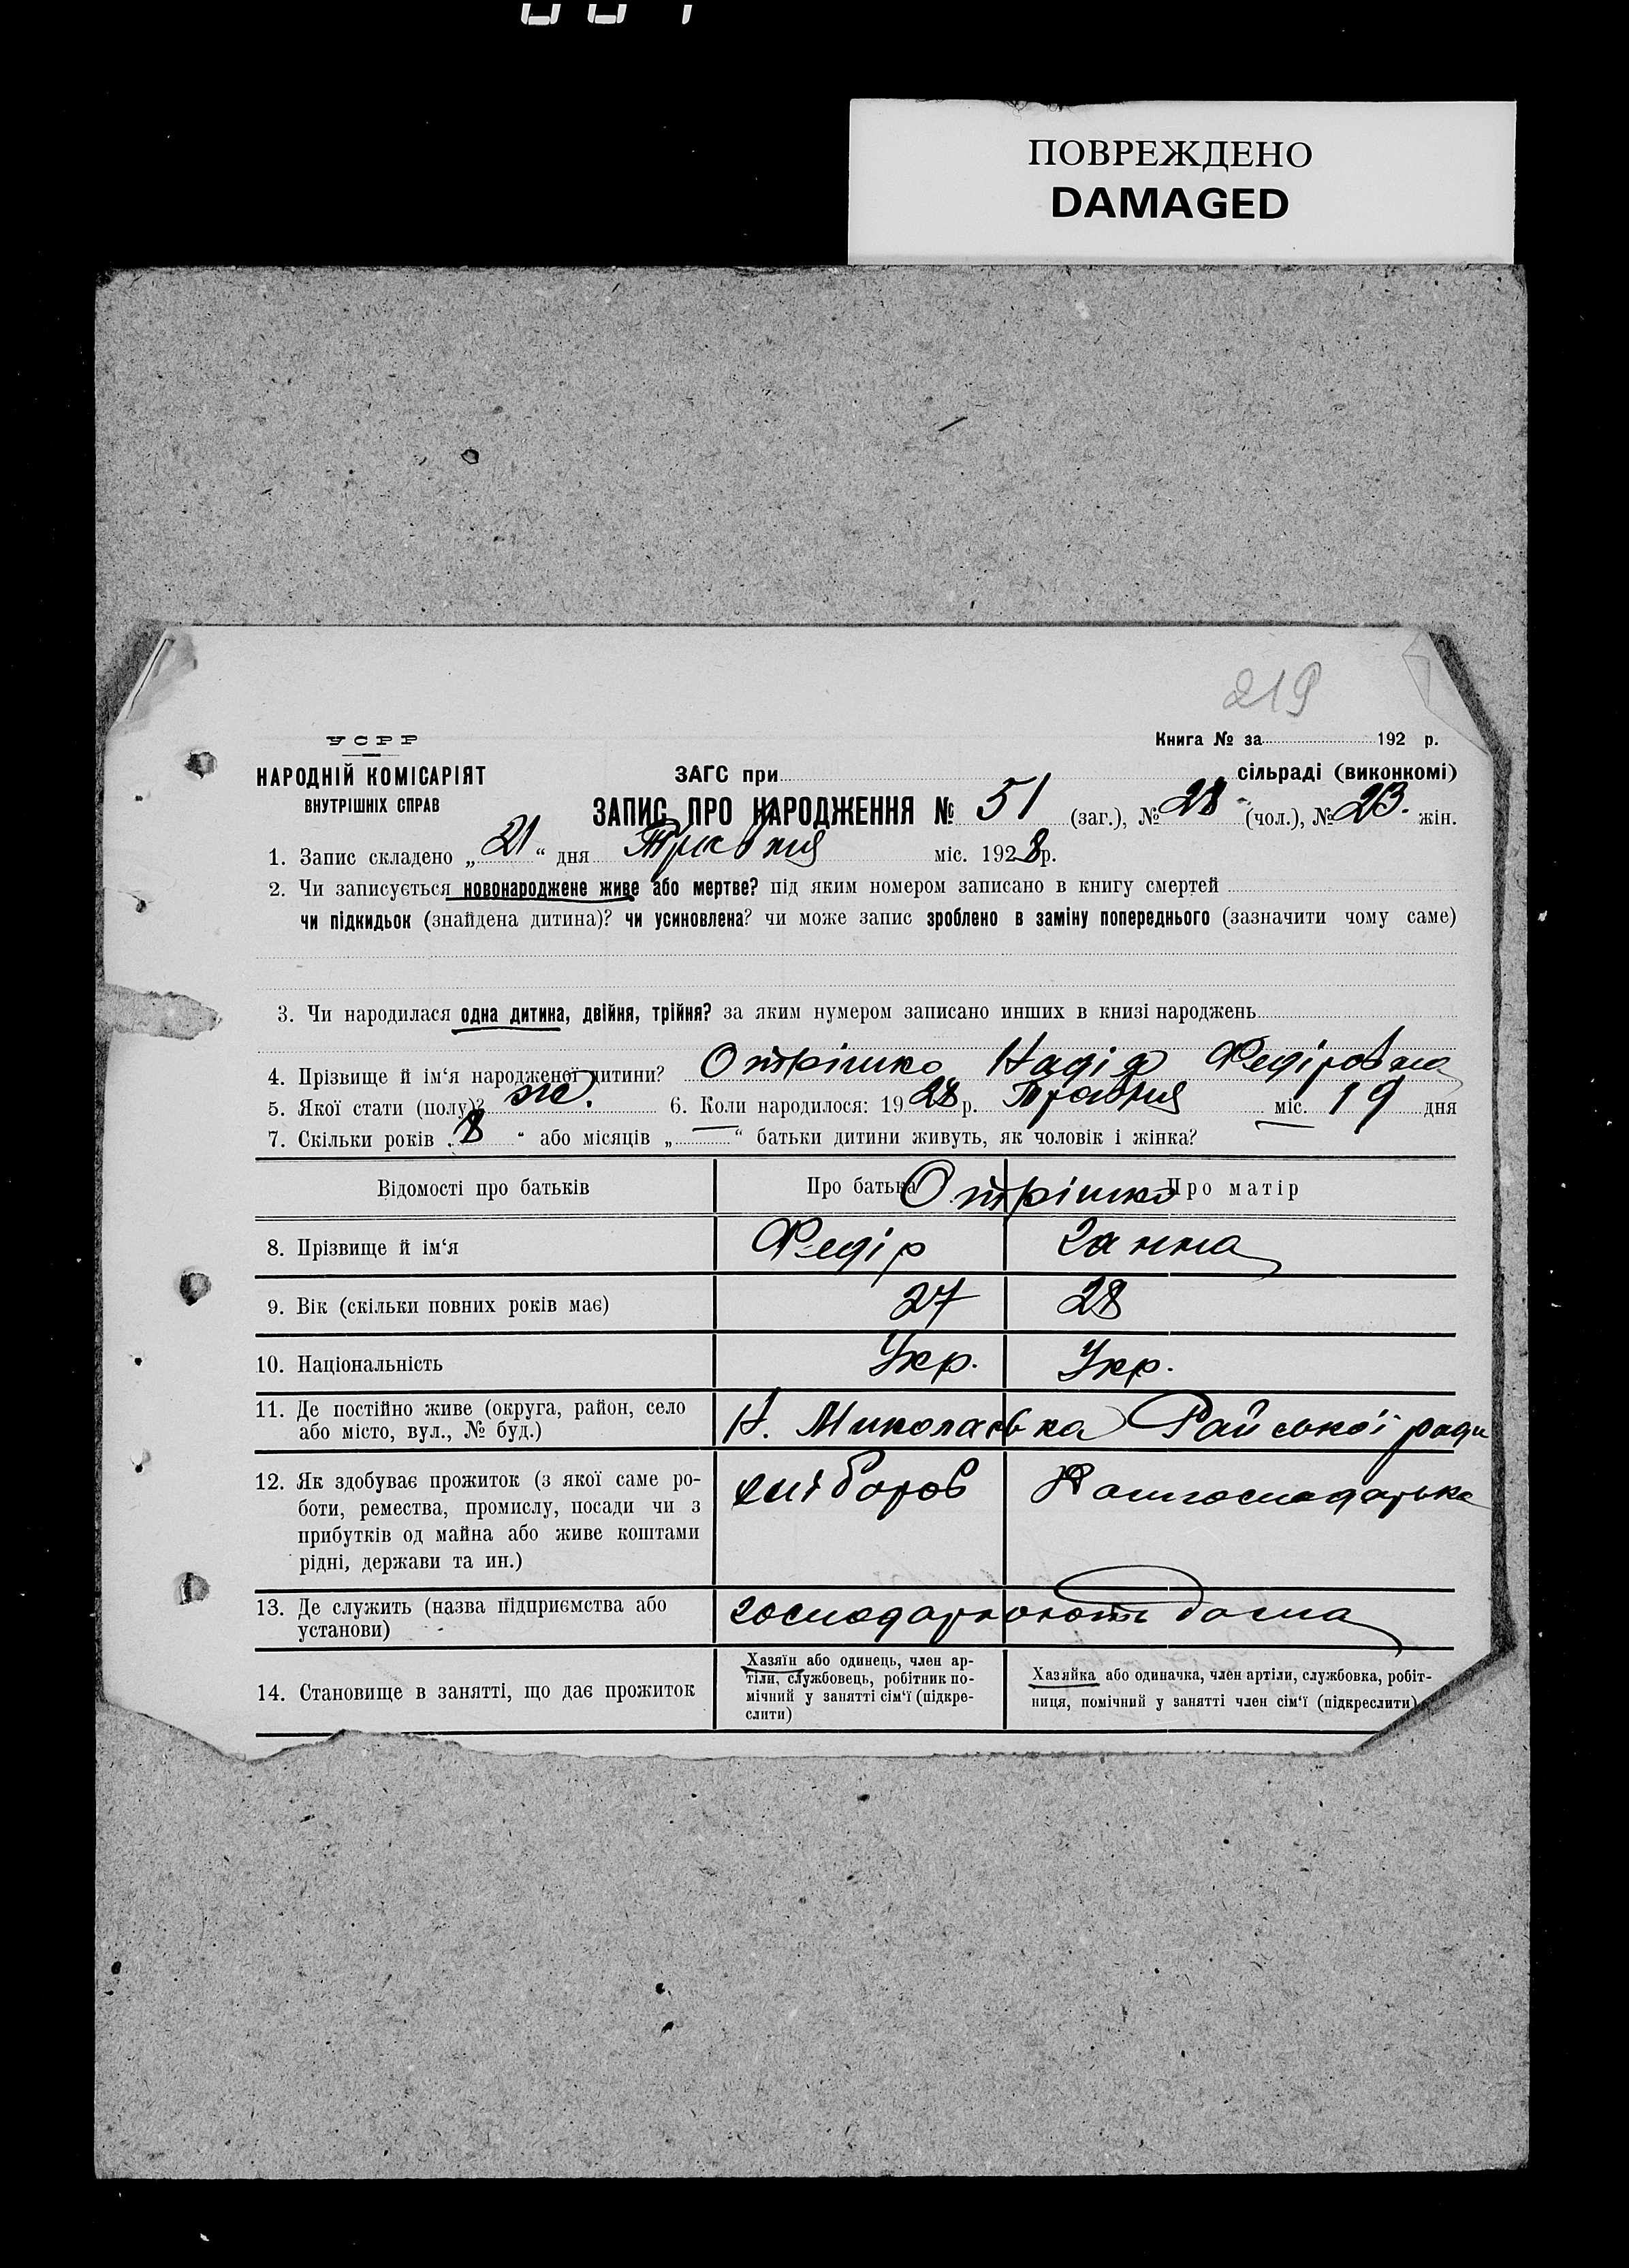 ПОВРЕЖДЕНО
DAMAGED
219
УСРР
Книга № за 192 р.
НАРОДНІЙ КОМІСАРІЯТ
ВНУТРІШНІХ СПРАВ
ЗАГС при сільраді (виконкомі)
ЗАПИС ПРО НАРОДЖЕННЯ № 51 (заг.), № 28 (чол.), № 23. жін.
1. Запис складено „ 21 “ дня Травня міс. 1928 р.
2. Чи записується новонароджене живе або мертве? під яким номером записано в книгу смертей
чи підкидьок (знайдена дитина)? чи усиновлена? чи може запис зроблено в заміну попереднього (зазначити чому саме)
3. Чи народилася одна дитина, двійня, трійня? за яким нумером записано инших в книзі народжень
4. Прізвище й ім‘я народженої дитини? Отрішко Надія Федіровна
5. Якої стати (полу)? ж. 6. Коли народилося: 19 28 р. Травня міс. 19 дня
7. Скільки років „ 8 “ або місяців „ “ батьки дитини живуть, як чоловік і жінка?
Відомості про батьків Про батька Отрішко Про матір
8. Прізвище й ім‘я Федір Ганна
9. Вік (скільки повних років має) 27 28
10. Національність Укр. Укр.
11. Де постійно живе (округа, район, село
або місто, вул., № буд.) Н. Миколаєвка Райської ради
12. Як здобуває прожиток (з якої саме ро-
боти, ремества, промислу, посади чи з
прибутків од майна або живе коштами
рідні, держави та ин.)
хлібороб Домгосподарька
13. Де служить (назва підприємства або
установи) господарюють дома
14. Становище в занятті, що дає прожиток
Хазяїн або одинець, член ар-
тіли, службовець, робітник по-
мічний у занятті сім‘ї (підкре-
слити)
Хазяйка або одиначка, член артіли, службовка, робіт-
ниця, помічний у занятті член сім‘ї (підкреслити)